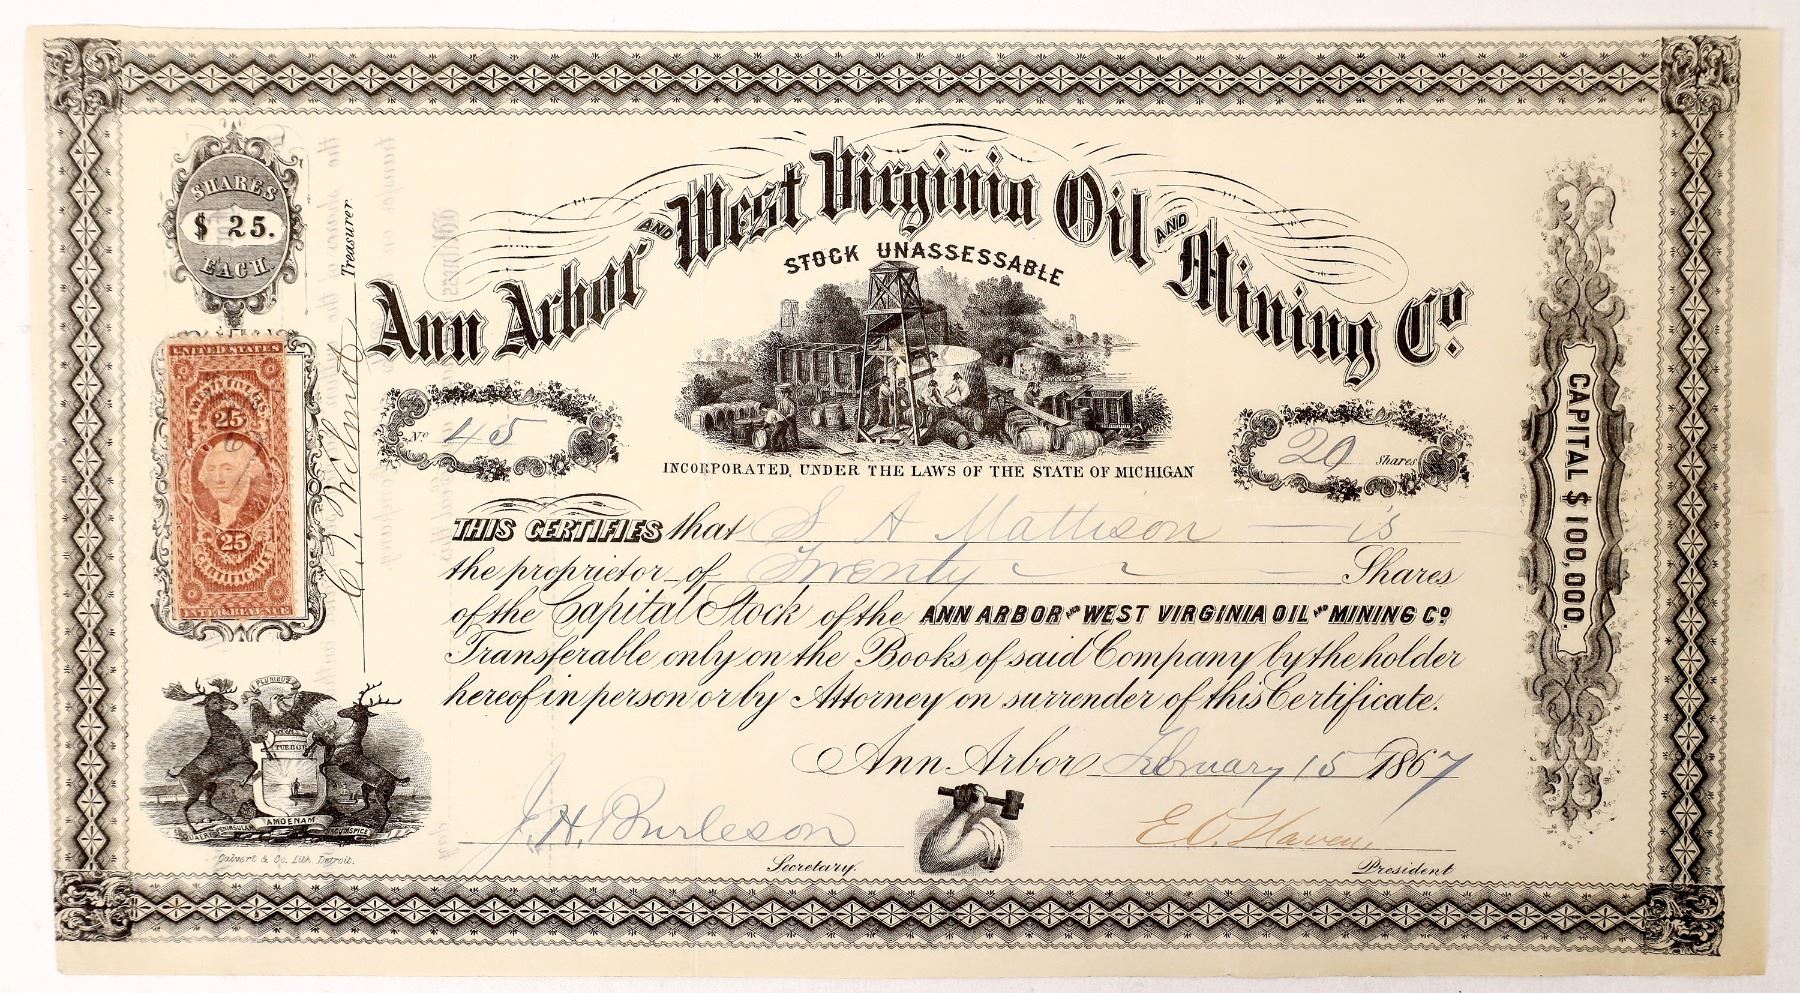 SHARES
$ 25.
EACH.
Treasurer
UNITED STATES
25
25
CERTIFICATE
INTER. REVENUE
Ann Arbor AND West Virginia Oil AND Mining Co.
STOCK UNASSESSABLE
No 45
20 Shares
INCORPORATED, UNDER THE LAWS OF THE STATE OF MICHIGAN
THIS CERTIFIES that S A Mattison is
the proprietor of Twenty Shares
of the Capital Stock of the ANN ARBOR AND WEST VIRGINIA OIL AND MINING Co.
Transferable only on the Books of said Company by the holder
hereof in person or by Attorney on surrender of this Certificate.
Ann Arbor February 15 1867
J. H. Burleson
Secretary.
E. O. Haven
President
CAPITAL $ 100,000.
PLURIBUS
TUEBOR
AMOENAM
CIRCUMSPICE
Calvert & Co. Lith. Detroit.